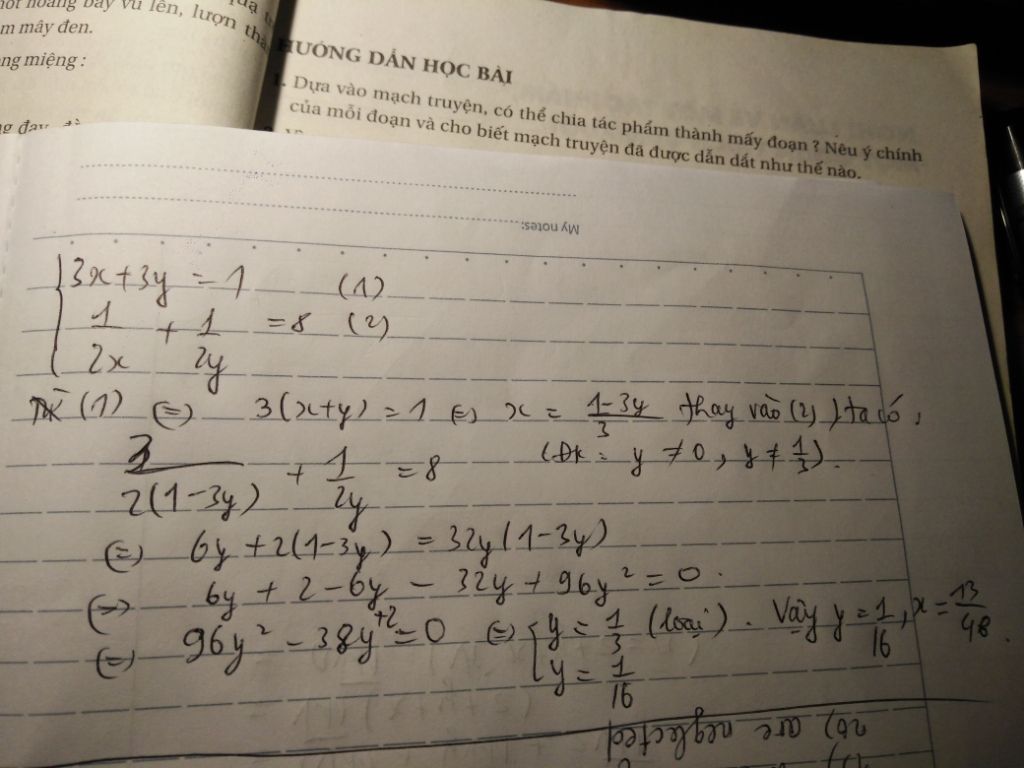 vũ lên, lượn
m mây đen.
ng miệng :
HƯỚNG DẪN HỌC BÀI
1. Dựa vào mạch truyện, có thể chia tác phẩm thành mấy đoạn ? Nêu ý chính
của mỗi đoạn và cho biết mạch truyện đã được dẫn dắt như thế nào.
My notes:
3x+3y = 1 (1)
1/2x + 1/2y = 8 (2)
(1) ⇔ 3(x+y) = 1 ⇔ x = (1-3y)/3 thay vào (2) ta có,
3/2(1-3y) + 1/2y = 8 (ĐK = y ≠ 0, y ≠ 1/3).
⇔ 6y + 2(1-3y) = 32y(1-3y)
⇔ 6y + 2 - 6y - 32y + 96y² = 0.
⇔ 96y² - 38y +2 = 0 ⇔ y = 1/3 (loại). Vậy y = 1/16, x = 13/48.
y = 1/16
are neglected